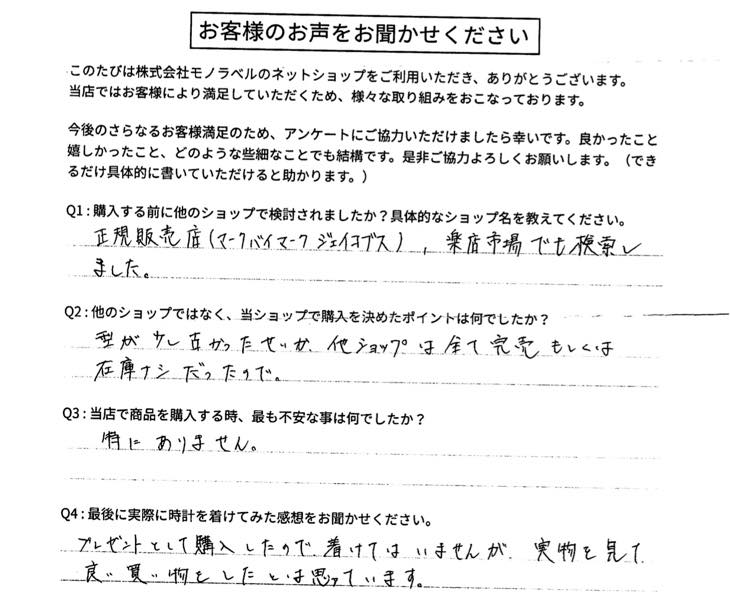 お客様のお声をお聞かせください
このたびは株式会社モノラベルのネットショップをご利用いただき、ありがとうございます。
当店ではお客様により満足していただくため、様々な取り組みをおこなっております。
今後のさらなるお客様満足のため、アンケートにご協力いただけましたら幸いです。良かったこと
嬉しかったこと、どのような些細なことでも結構です。是非ご協力よろしくお願いします。（でき
るだけ具体的に書いていただけると助かります。）
Q1:購入する前に他のショップで検討されましたか？具体的なショップ名を教えてください。
正規販売店(マークバイマークジェイコブス)，楽店市場でも検索し
ました。
Q2:他のショップではなく、当ショップで購入を決めたポイントは何でしたか？
型が少し古かったせいか、他ショップは全て完売もしくは
在庫ナシだったので。
Q3:当店で商品を購入する時、最も不安な事は何でしたか？
特にありません。
Q4:最後に実際に時計を着けてみた感想をお聞かせください。
プレゼントとして購入したので、着けてはいませんが、実物を見て、
良い買い物をしたとは思っています。